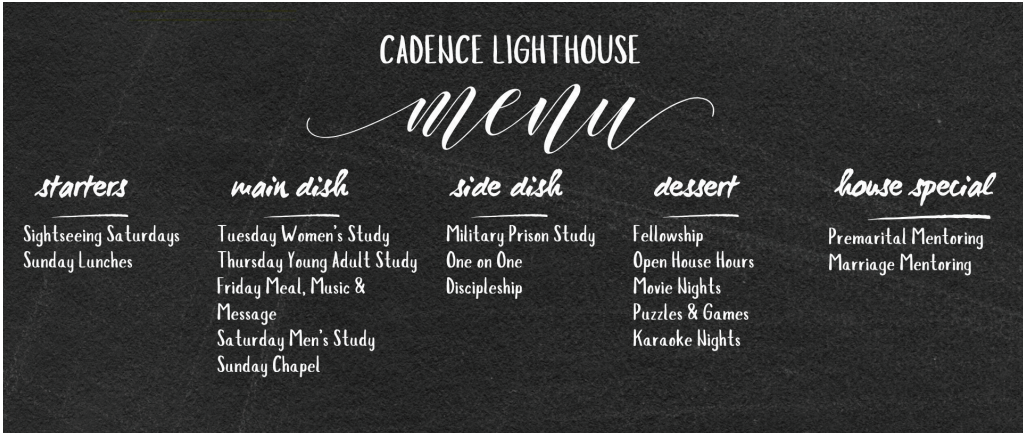 CADENCE LIGHTHOUSE
menu
starters
Sightseeing Saturdays
Sunday Lunches
main dish
Tuesday Women's Study
Thursday Young Adult Study
Friday Meal, Music &
Message
Saturday Men's Study
Sunday Chapel
side dish
Military Prison Study
One on One
Discipleship
dessert
Fellowship
Open House Hours
Movie Nights
Puzzles & Games
Karaoke Nights
house special
Premarital Mentoring
Marriage Mentoring